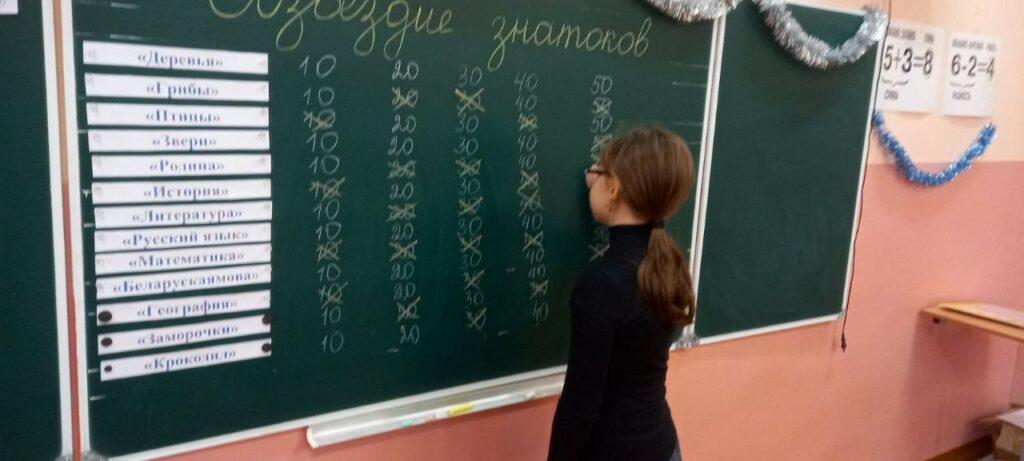 Созвездие знатоков
«Деревья» 10 20 30 40 50
«Грибы» 10 20 30 40 50
«Птицы» 10 20 30 40 50
«Звери» 10 20 30 40
«Родина» 10 20 30 40
«История» 10 20 30 40
«Литература» 10 20 30 40
«Русский язык» 10 20 30 40
«Математика» 10 20 30 40
«Беларускаямова» 10 20 30 - 40
«География» 10 20 30 40
«Заморочки» 10 20 30 40
«Крокодил» 10 - 20 30 -
5+3=8
СУММА
6-2=4
РАЗНОСТЬ